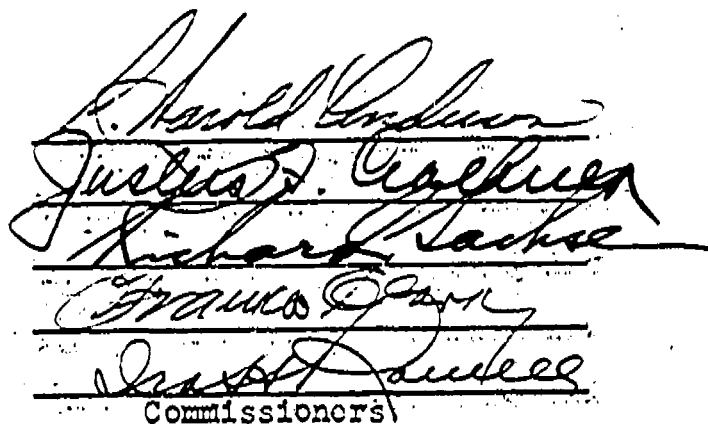 R. Harold Anderson
Justus F. Craemer
Richard Sachse
Franck
Ira H. Rowell
Commissioners